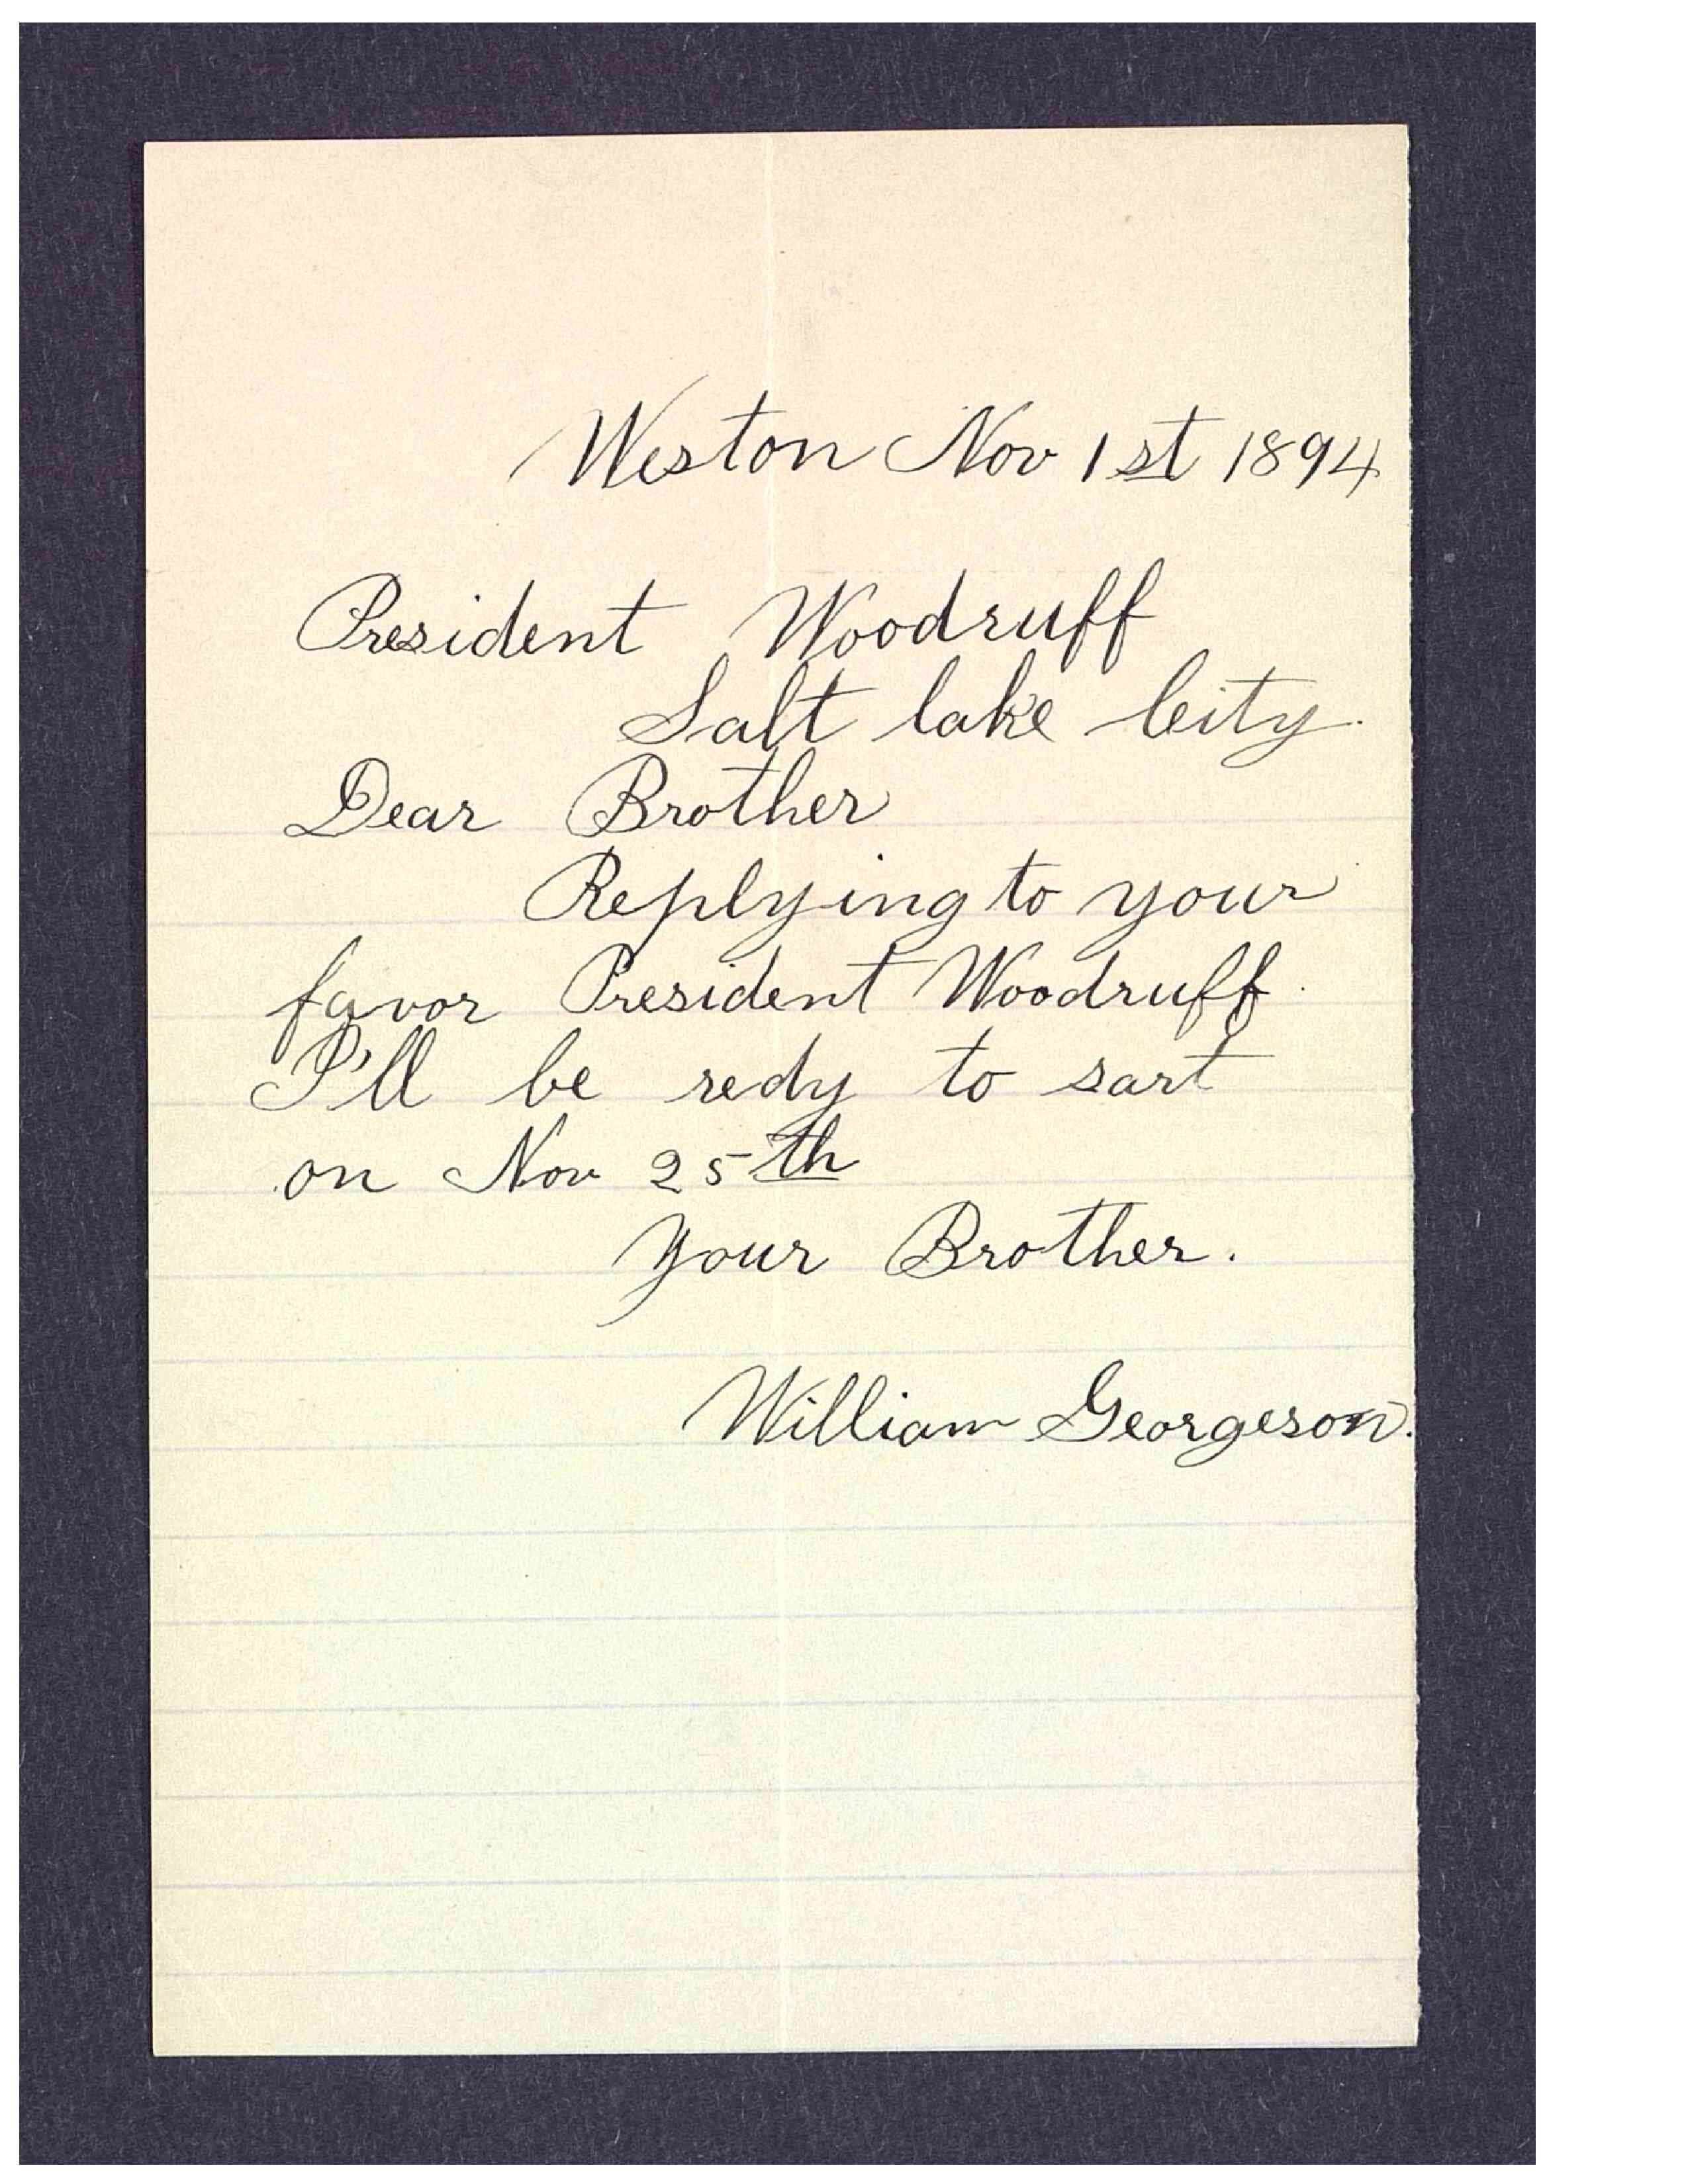 Weston Nov 1st 1894
President Woodruff
Salt lake City.
Dear Brother
Replying to your
favor President Woodruff.
I'll be redy to sart
on Nov 25th
Your Brother.
William Georgeson.